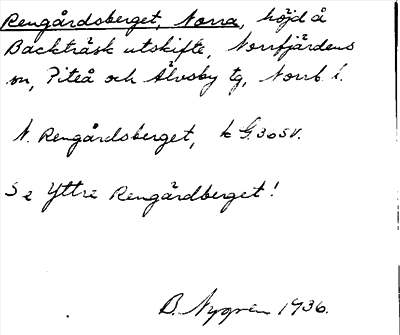 Rengårdsberget, Norra, höjd å
Backträsk utskifte, Norrfjärdens
sn, Piteå och Älvsby tg, Norrb. l.
N. Rengårdsberget, k G. 30 SV.
Se Yttre Rengårdberget!
B. Nygren 1936.